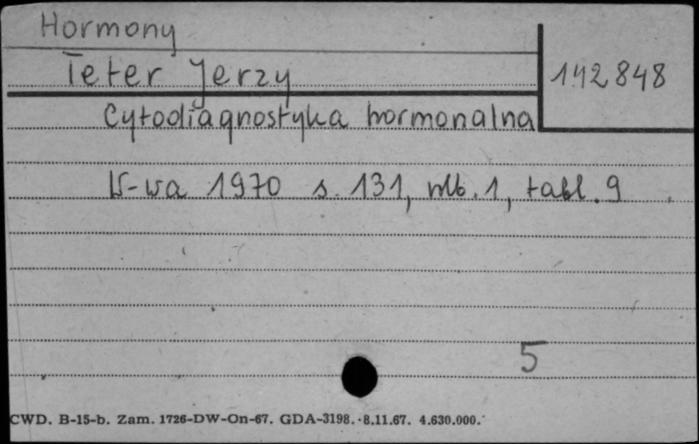 Hormony
Teter Jerzy
142848
Cytodiagnostyka hormonalna
W-wa 1970 s. 131, nlb. 1, tabl. 9
5
CWD. B-15-b. Zam. 1726-DW-On-67. GDA-3198. 8.11.67. 4.630.000.